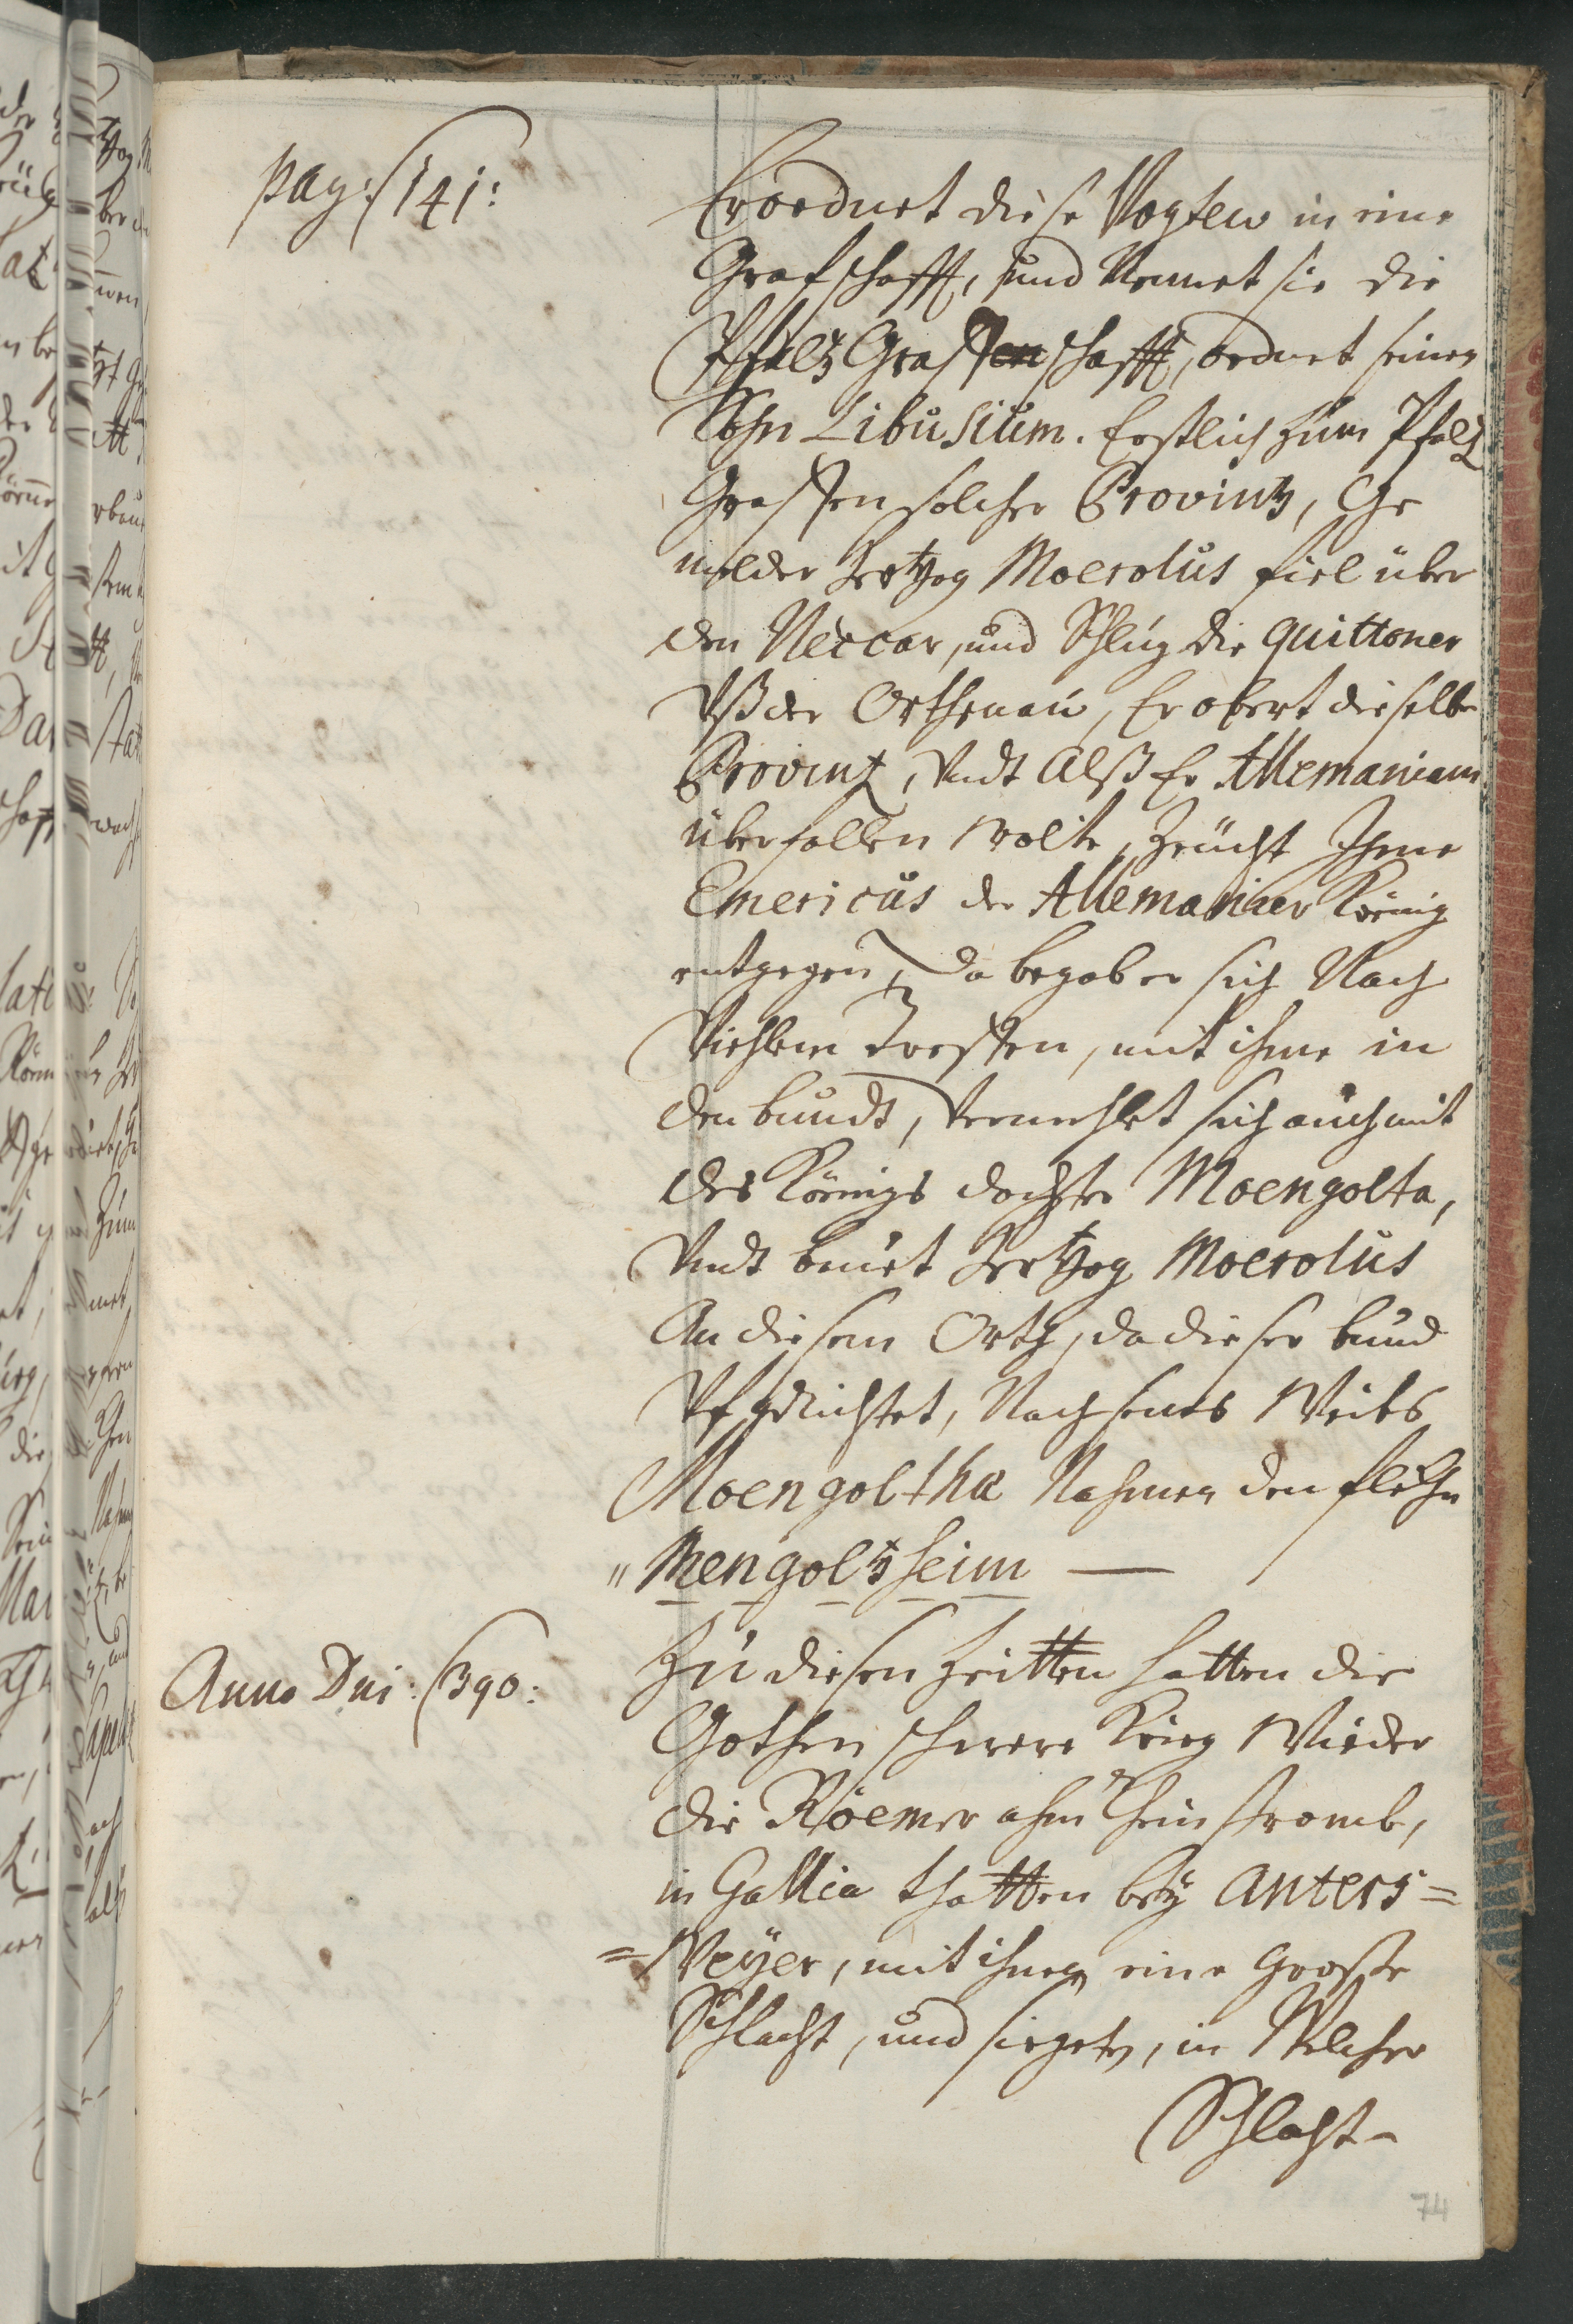 pag: 141:
Erordnet diese Vogteÿ in eine
Grafschafft, und Nennet sie die
Pfaltz Graffenschafft, ordnet seinen
Sohn Libusium. Erstlich zum Pfaltz
Graffen solcher Provintz, Ge
melder Hertzog Moerolus fiel über
den Neccar, und Schlug die quittoner
Vß der Orthenau, Erobert dieselbe
Provintz, Vndt Alß Er Allemaniam
überfallen wolte, Zeücht Ihme
Emericus der Allemanier König
entgegen, da begab er sich Nach
Viehlem Treffen, mit ihme in
den bundt, Vermehlet sich auch mit
des Königs dochter Moengolta,
Vndt bauet Hertzog Moerolus
An diesem Orth, da dieser bund
Vfgerichtet, Nach seines Weibs
Moengoltha Nahmen den flekhen
" Mengoltzheim —
Anno Dni: 390:
Zu diesen Zeitten hatten die
Gothen schwere Krieg Wieder
die Röemer ahm Rheinstromb,
in Gallia thatten beÿ Anters=
=Weÿer, mit ihnen eine Grosse
Schlacht, und siegten, in Welcher
Schlacht-
74